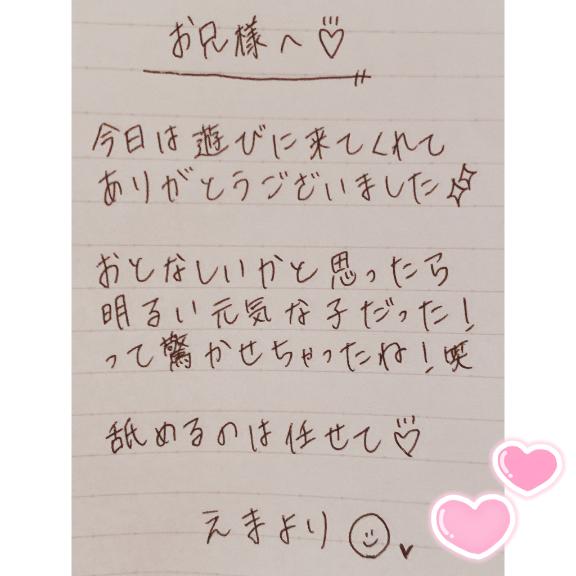 お兄様へ♡
今日は遊びに来てくれて
ありがとうございました
おとなしいかと思ったら
明るい元気な子だった！
って驚かせちゃったね！笑
舐めるのは任せて♡
えまより